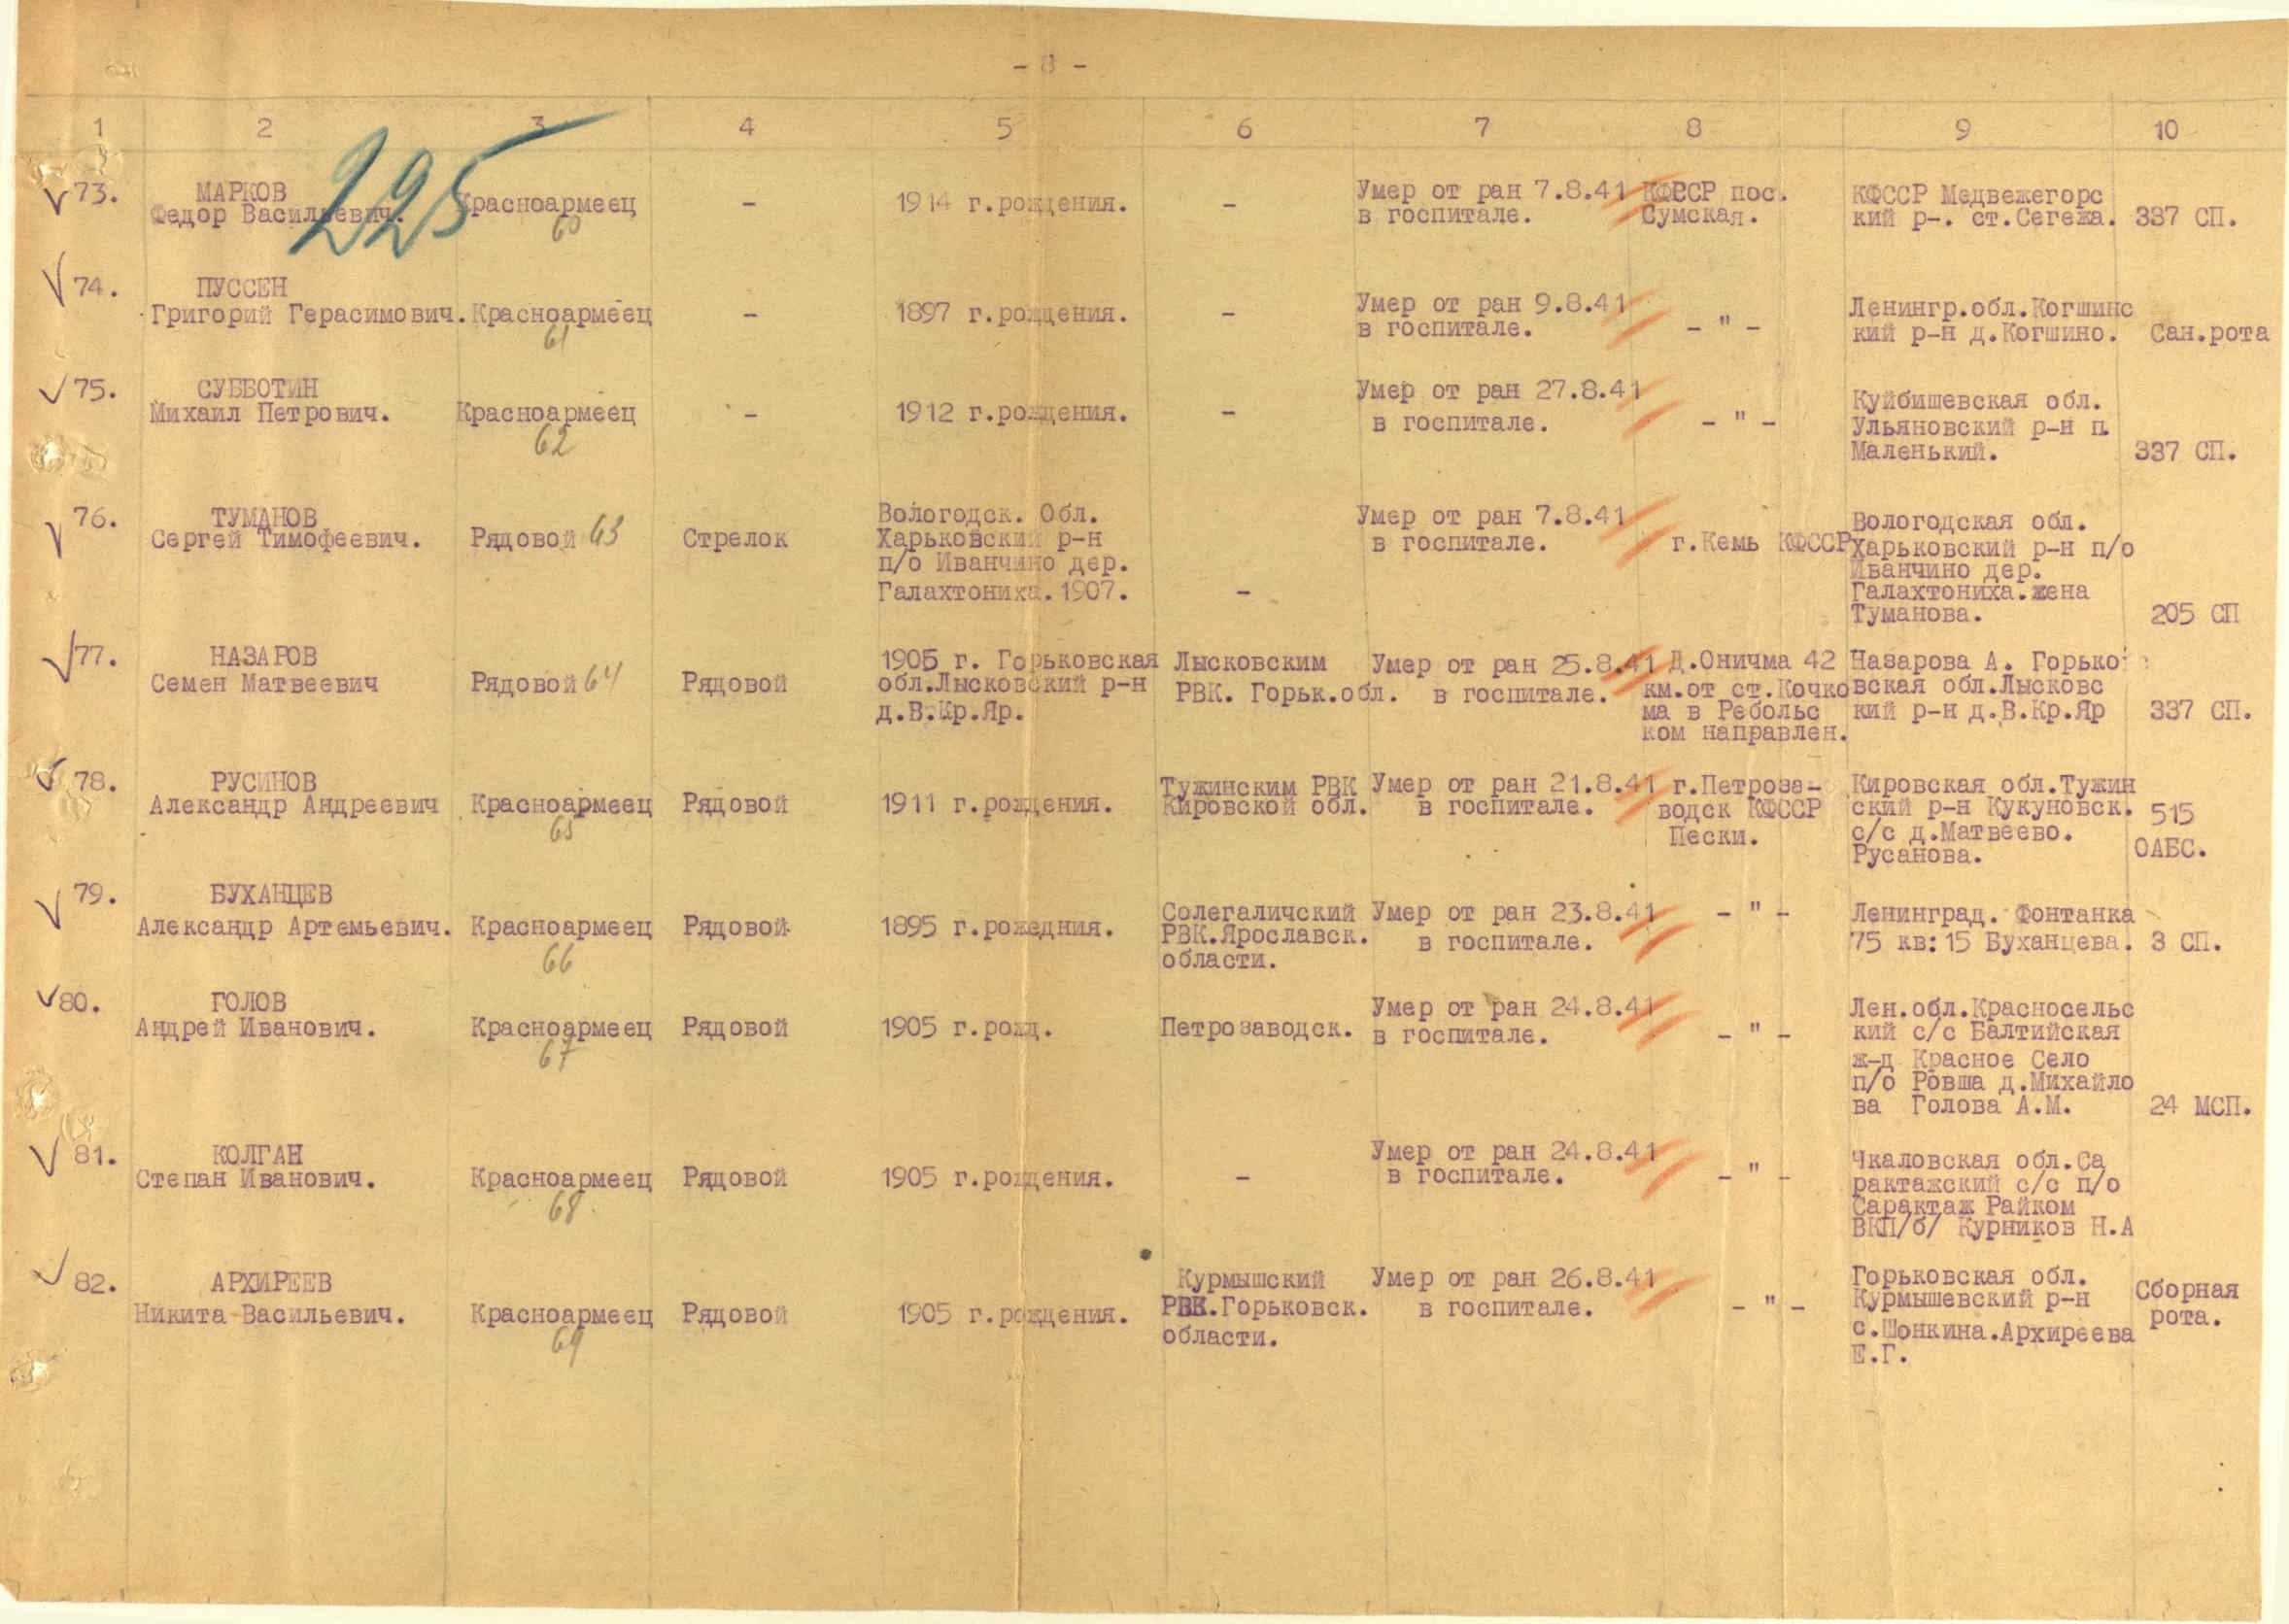 - 8 -
1 2 3 4 5 6 7 8 9 10
225
73. МАРКОВ
Федор Васильевич.
Красноармеец
60
-
1914 г.рождения.
-
Умер от ран 7.8.41
в госпитале.
КФССР пос.
Сумская.
КФССР Медвежегорс
кий р-. ст.Сегежа.
337 СП.
74. ПУССЕН
Григорий Герасимович.
Красноармеец
61
-
1897 г.рождения.
-
Умер от ран 9.8.41
в госпитале.
- " -
Ленингр.обл.Когшинс
кий р-н д.Когшино.
Сан.рота
75. СУББОТИН
Михаил Петрович.
Красноармеец
62
-
1912 г.рождения.
-
Умер от ран 27.8.41
в госпитале.
- " -
Куйбишевская обл.
Ульяновский р-н п.
Маленький.
337 СП.
76. ТУМАНОВ
Сергей Тимофеевич.
Рядовой 63
Стрелок
Вологодск. Обл.
Харьковский р-н
п/о Иванчино дер.
Галахтониха. 1907.
-
Умер от ран 7.8.41
в госпитале.
г.Кемь КФССР
Вологодская обл.
Харьковский р-н п/о
Иванчино дер.
Галахтониха.жена
Туманова.
205 СП
77. НАЗАРОВ
Семен Матвеевич
Рядовой 64
Рядовой
1905 г. Горьковская
обл.Лысковский р-н
д.В.Кр.Яр.
Лысковским
РВК. Горьк.обл.
Умер от ран 25.8.41
в госпитале.
Д.Оничма 42
км.от ст.Кочко
ма в Ребольс
ком направлен.
Назарова А. Горько
вская обл.Лысковс
кий р-н д.В.Кр.Яр
337 СП.
78. РУСИНОВ
Александр Андреевич
Красноармеец
65
Рядовой
1911 г.рождения.
Тужинским РВК
Кировской обл.
Умер от ран 21.8.41
в госпитале.
г.Петроза-
водск КФССР
Пески.
Кировская обл.Тужин
ский р-н Кукуновск.
с/с д.Матвеево.
Русанова.
515
ОАБС.
79. БУХАНЦЕВ
Александр Артемьевич.
Красноармеец
66
Рядовой
1895 г.рожедния.
Солегаличский
РВК.Ярославск.
области.
Умер от ран 23.8.41
в госпитале.
- " -
Ленинград. Фонтанка
75 кв:15 Буханцева.
3 СП.
80. ГОЛОВ
Андрей Иванович.
Красноармеец
67
Рядовой
1905 г.рожд.
Петрозаводск.
Умер от ран 24.8.41
в госпитале.
- " -
Лен.обл.Красносельс
кий с/с Балтийская
ж-д Красное Село
п/о Ровша д.Михайло
ва Голова А.М.
24 МСП.
81. КОЛГАН
Степан Иванович.
Красноармеец
68
Рядовой
1905 г.рождения.
-
Умер от ран 24.8.41
в госпитале.
- " -
Чкаловская обл.Са
рактажский с/с п/о
Сарактаж Райком
ВКП/б/ Курников Н.А
82. АРХИРЕЕВ
Никита Васильевич.
Красноармеец
69
Рядовой
1905 г.рождения.
Курмышский
РВК.Горьковск.
области.
Умер от ран 26.8.41
в госпитале.
- " -
Горьковская обл.
Курмышевский р-н
с.Шонкина.Архиреева
Е.Г.
Сборная
рота.